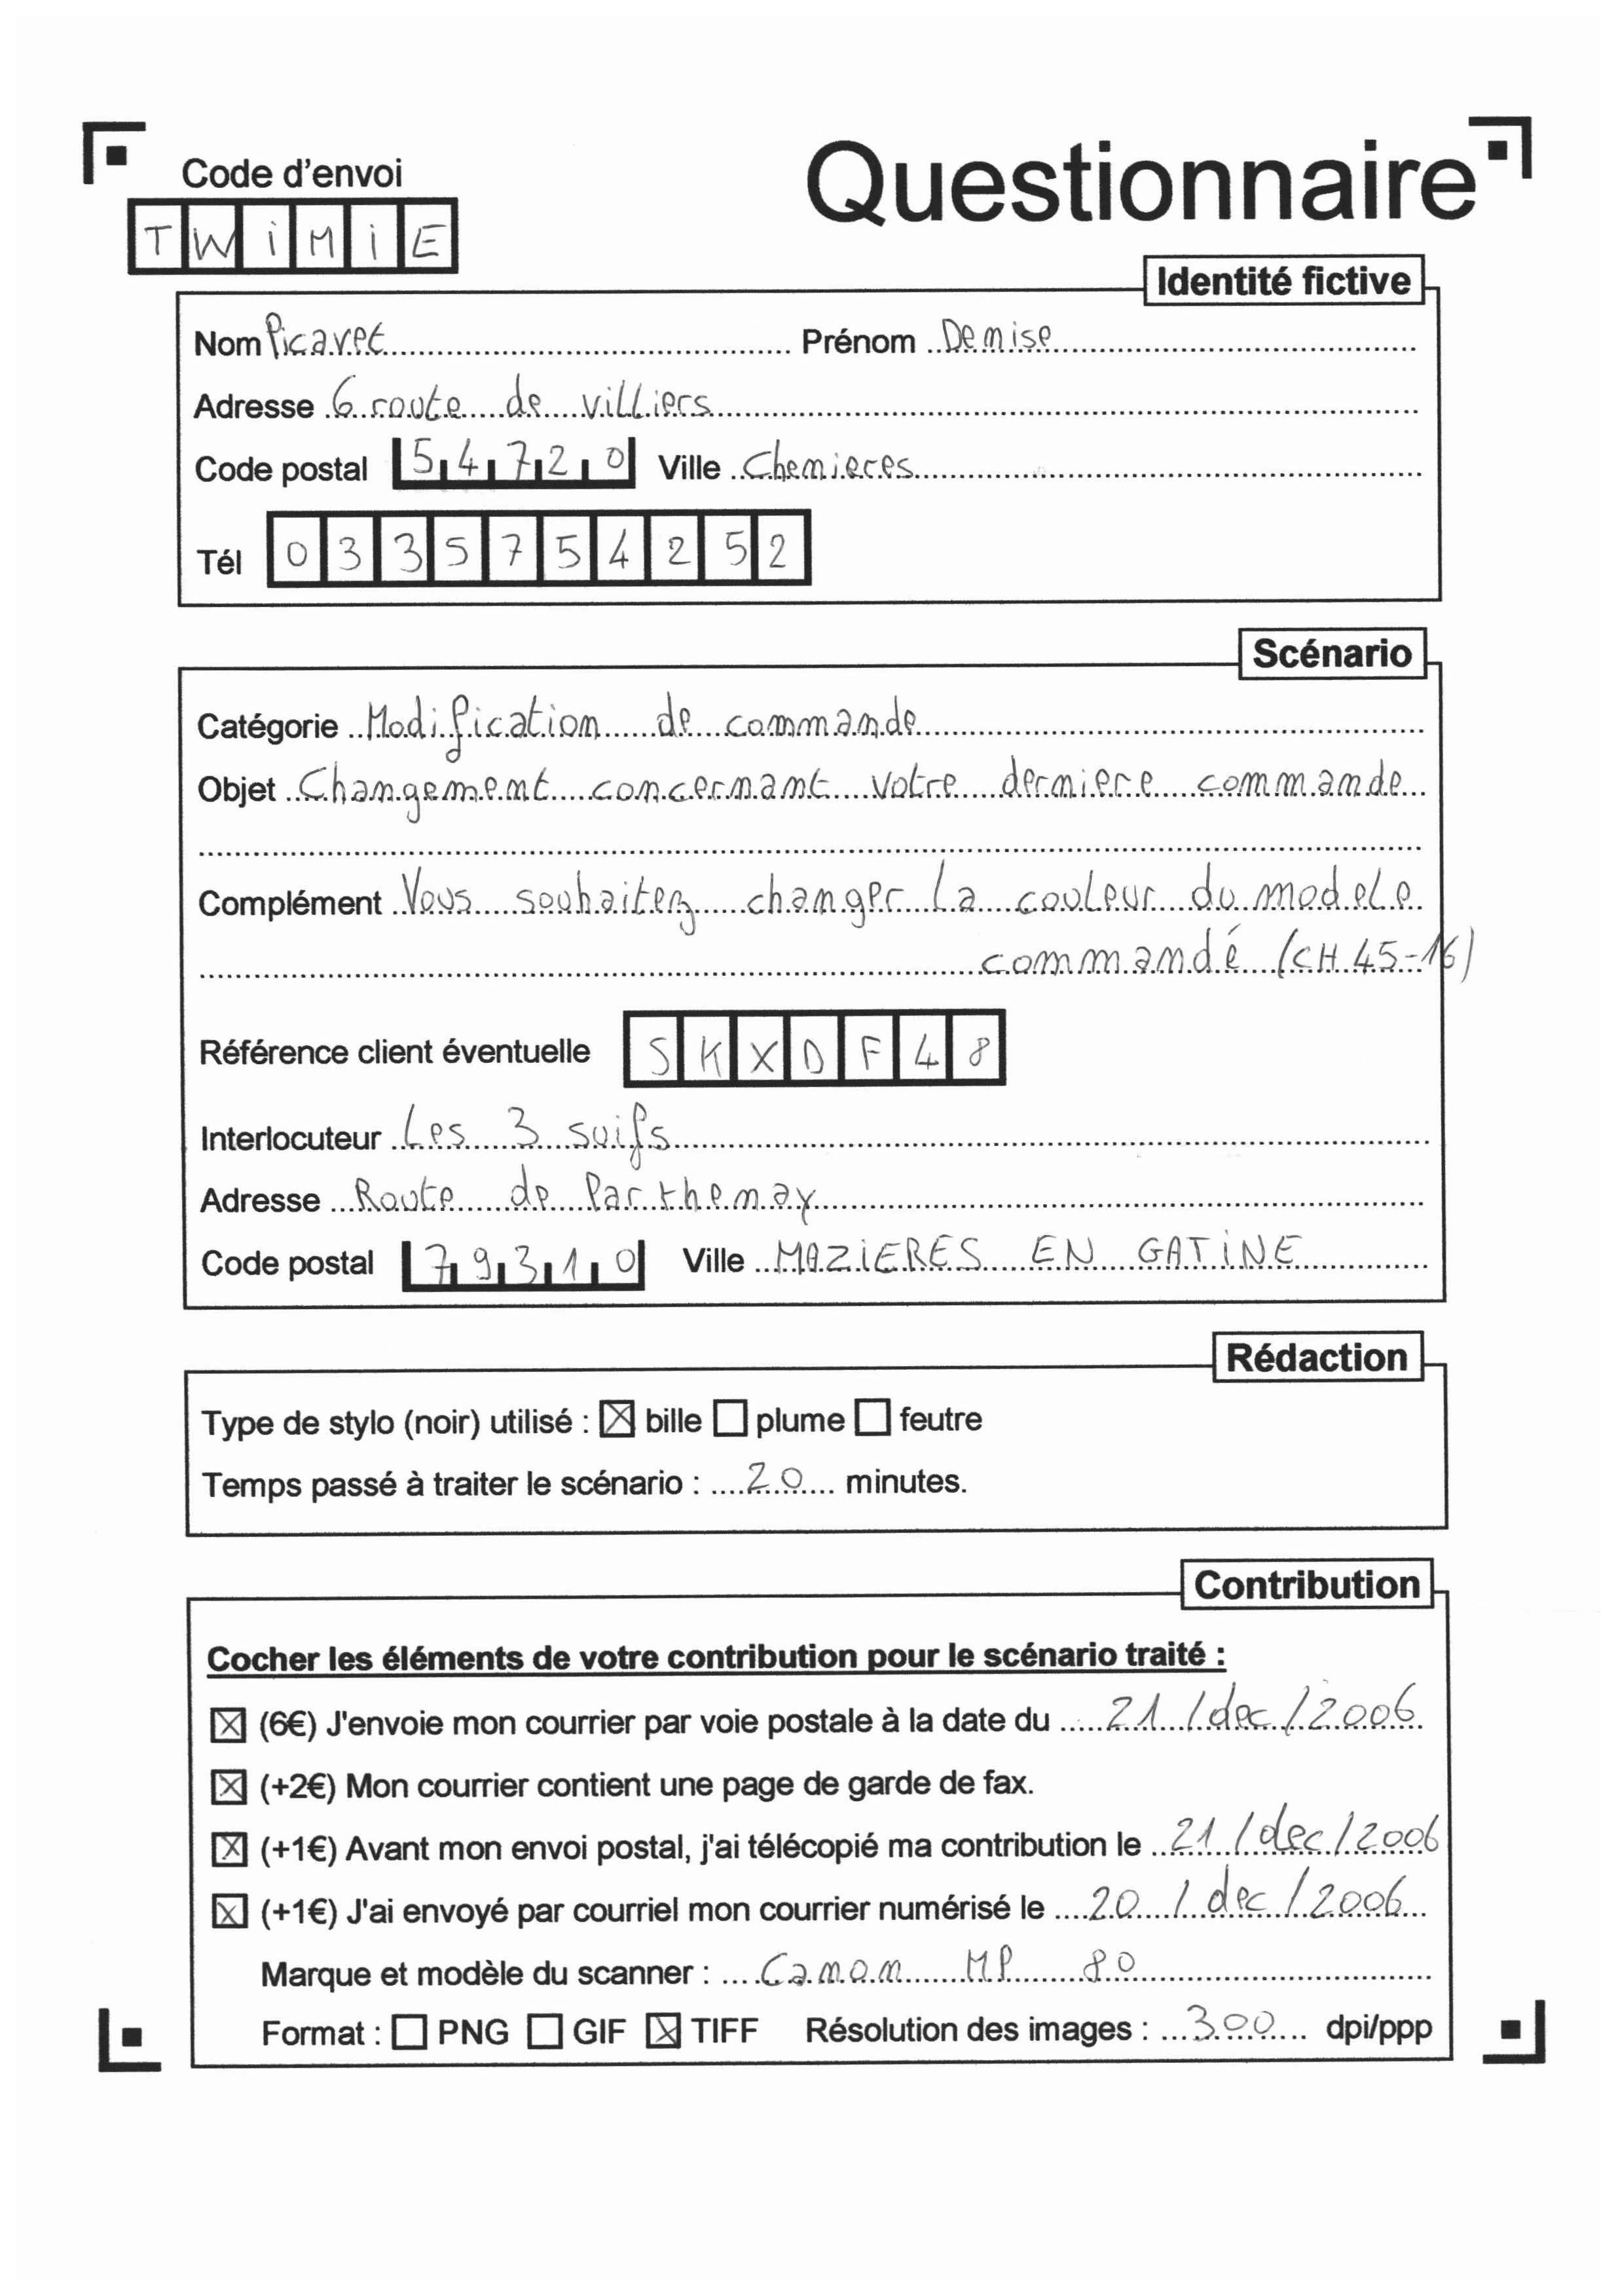 Code d'envoi
Questionnaire
TWiMiE
Identité fictive
Nom Picavet Prénom Denise
Adresse 6 route de villiers
Code postal 54720 Ville Chenieres
Tél 0335754252
Scénario
Catégorie Modification de commande
Objet Changement concernant votre derniere commande
Complément Vous souhaitez changer la couleur du modele
commandé (CH 45-16)
Référence client éventuelle SKXDF48
Interlocuteur Les 3 suifs
Adresse Route de Parthenay
Code postal 79310 Ville MAZiERES EN GATiNE
Rédaction
Type de stylo (noir) utilisé : ☒ bille ☐ plume ☐ feutre
Temps passé à traiter le scénario : 20 minutes.
Contribution
Cocher les éléments de votre contribution pour le scénario traité :
☒ (6€) J'envoie mon courrier par voie postale à la date du 21 / dec / 2006
☒ (+2€) Mon courrier contient une page de garde de fax.
☒ (+1€) Avant mon envoi postal, j'ai télécopié ma contribution le 21 / dec / 2006
☒ (+1€) J'ai envoyé par courriel mon courrier numérisé le 20 / dec / 2006
Marque et modèle du scanner : Canon MP 80
Format : ☐ PNG ☐ GIF ☒ TIFF Résolution des images : 300 dpi/ppp